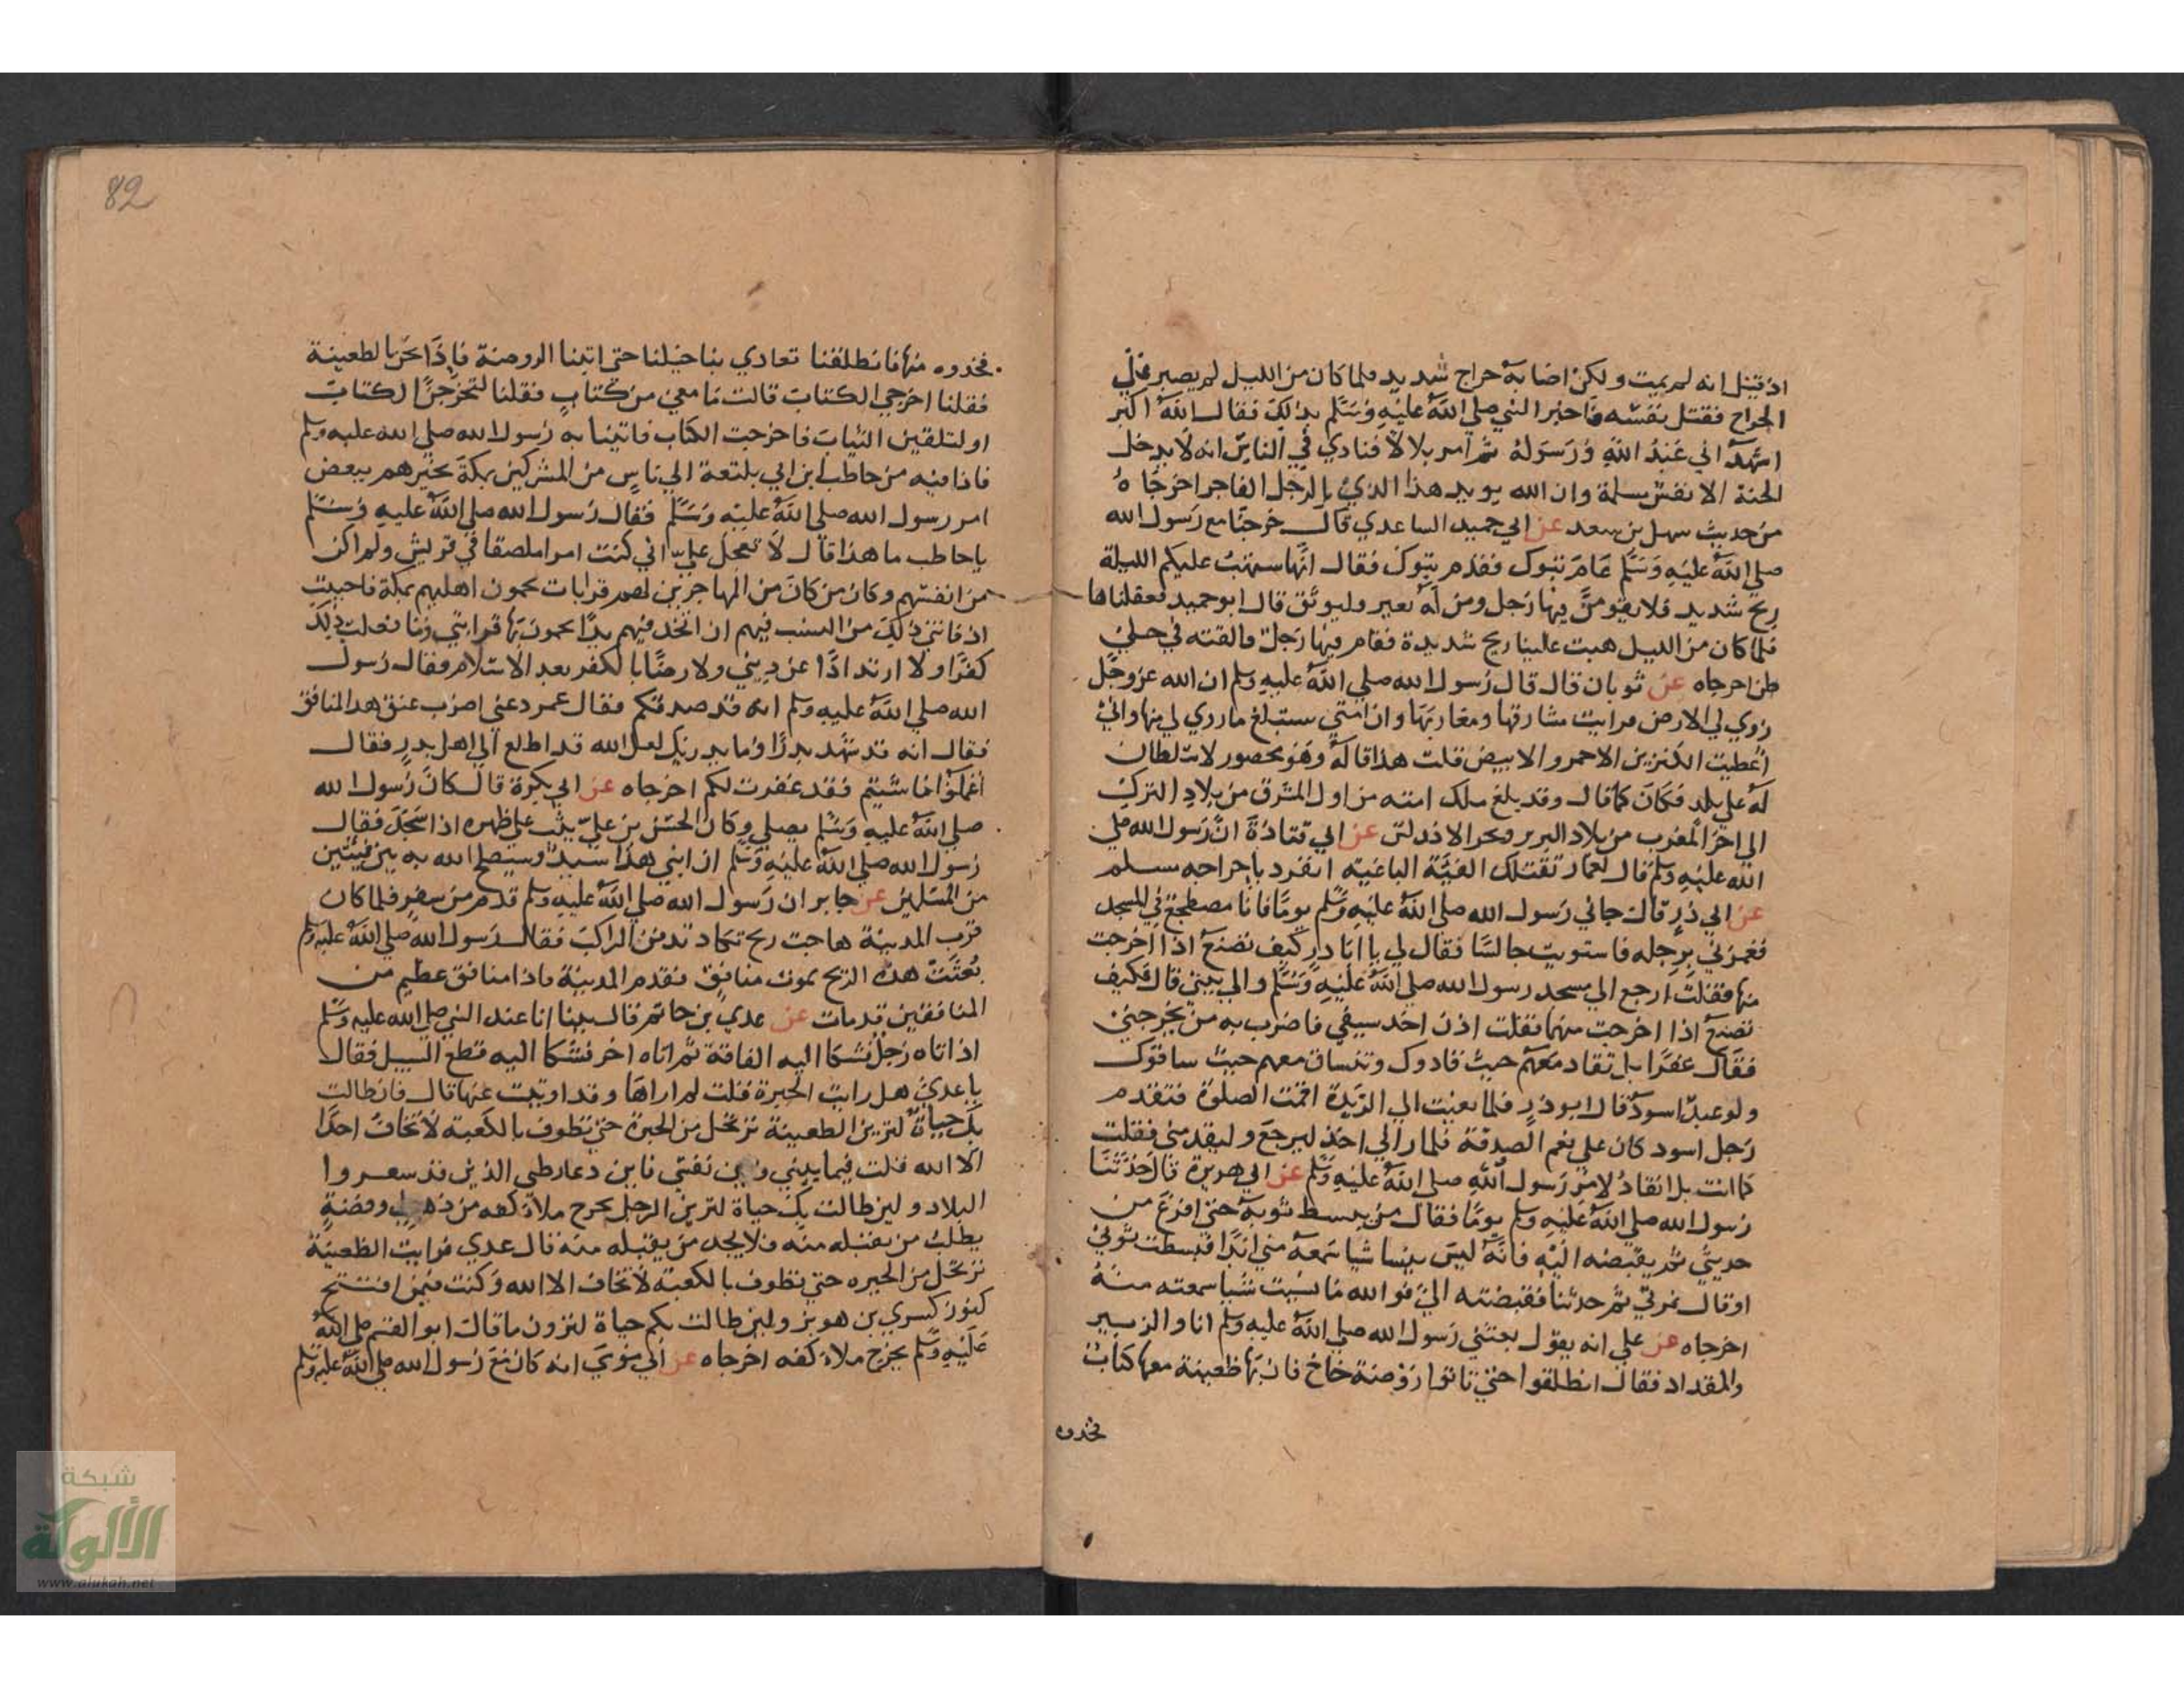 اذ قيل انه لم يمت ولكن اصابه جراح شديد فلما كان من الليل لم يصبر على
الجراح فقتل نفسه فاخبر النبي صلى الله عليه وسلم بذلك فقال الله اكبر
اشهد اني عبد الله ورسوله ثم امر بلالا فنادي في الناس انه لا يدخل
الجنة الا نفس مسلمة وان الله يويد هذا الدين بالرجل الفاجر اخرجاه
من حديث سهل بن سعد عن ابي حميد الساعدي قال خرجنا مع رسول الله
صلى الله عليه وسلم عام تبوك فقدم تبوك فقال انها ستهب عليكم الليلة
ريح شديد فلا يقومن فيها رجل ومن له بعير فليوثق قال ابو حميد فعقلناها
فلما كان من الليل هبت علينا ريح شديدة فقام فيها رجل فالقته في جبلي
طي اخرجاه عن ثوبان قال قال رسول الله صلى الله عليه وسلم ان الله عز وجل
زوي لي الارض فرايت مشارقها ومغاربها وان امتي ستبلغ ما زوي لي منها واني
اعطيت الكنزين الاحمر والابيض قلت هذا قاله وهو محصور لا سلطان
له على بلد فكان كما قال وقد بلغ ملك امته من اول المشرق من بلاد الترك
الى اخر المغرب من بلاد البربر وبحر الاندلس عن ابي قتادة ان رسول الله صلى
الله عليه وسلم قال لعمار تقتلك الفية الباغيه انفرد باخراجه مسلم
عن ابي ذر قال جاني رسول الله صلى الله عليه وسلم يوما فانا مضطجع في المسجد
فغمزني برجله فاستويت جالسا فقال لي يا ابا در كيف تصنع اذا اخرجت
منها فقلت ارجع الي مسجد رسول الله صلى الله عليه وسلم والي بيتي قال فكيف
تصنع اذا اخرجت منها فقلت اذن اخد سيفي فاضرب به من يخرجني
فقال غفرا بل تقاد معهم حيث قادوك وتنساق معهم حيث ساقوك
ولو عبدا اسود قال ابو ذر فلما بعيت الي الربدة اقمت الصلوة فتقدم
رجل اسود كان على نعم الصدقة فلما راني اخذ ليرجع وليقدمني فقلت
كما انت بل انقاد لامر رسول الله صلى الله عليه وسلم عن ابي هريرة قال حدثنا
رسول الله صلى الله عليه وسلم يوما فقال من يبسط ثوبه حتى افرغ من
حديثي ثم يقبضه اليه فانه ليس ينسا شيا سمعه مني ابدا فبسطت ثوبي
او قال نمرتي ثم حدثنا فقبضته الي فوالله ما نسيت شيا سمعته منه
اخرجاه عن علي انه يقول بعثني رسول الله صلى الله عليه وسلم انا والزبير
والمقداد فقال انطلقوا حتى تاتوا روضة خاخ فان بها ظعينة معها كتاب
فخدوه
فخدوه منها فانطلقنا تعادي بنا خيلنا حتى اتينا الروضة فاذا نحن بالظعينة
فقلنا اخرجي الكتاب قالت ما معي من كتاب فقلنا لتخرجن الكتاب
او لتلقين الثياب فاخرجت الكتاب فاتينا به رسول الله صلى الله عليه وسلم
فاذا فيه من حاطب ابن ابي بلتعة الي ناس من المشركين بمكة يخبرهم ببعض
امر رسول الله صلى الله عليه وسلم فقال رسول الله صلى الله عليه وسلم
يا حاطب ما هذا قال لا تعجل علي اني كنت امرا ملصقا في قريش ولم اكن
من انفسهم وكان من كان من المهاجرين لهم قرابات يحمون اهليهم بمكة فاحببت
اذ فاتني ذلك من النسب فيهم ان اتخد فيهم يدا يحمون بها قرابتي وما فعلت ذلك
كفرا ولا ارتدادا عن ديني ولا رضا بالكفر بعد الاسلام فقال رسول
الله صلى الله عليه وسلم انه قد صدقكم فقال عمر دعني اضرب عنق هدا المنافق
فقال انه قد شهد بدرا وما يدريك لعل الله قد اطلع الي اهل بدر فقال
اعملوا ما شيتم فقد غفرت لكم اخرجاه عن ابي بكرة قال كان رسول الله
صلى الله عليه وسلم يصلي وكان الحسن بن علي يثب على ظهره اذا سجد فقال
رسول الله صلى الله عليه وسلم ان ابني هذا سيد وسيصلح الله به بين فيتين
من المسلمين عن جابر ان رسول الله صلى الله عليه وسلم قدم من سفر فلما كان
قرب المدينة هاجت ريح تكاد تدفن الراكب فقال رسول الله صلى الله عليه وسلم
بعثت هده الريح لموت منافق فقدم المدينة فاذا منافق عظيم من
المنافقين قد مات عن عدي بن حاتم قال بينا انا عند النبي صلى الله عليه وسلم
اذ اتاه رجل فشكا اليه الفاقة ثم اتاه اخر فشكا اليه قطع السبيل فقال
يا عدي هل رايت الحيرة قلت لم اراها وقد انبيت عنها قال فان طالت
بك حياة لترين الظعينة ترتحل من الحيرة حتى تطوف بالكعبة لا تخاف احدا
الا الله قلت فيما بيني وبين نفسي فاين دعار طي الذين قد سعروا
البلاد ولين طالت بك حياة لترين الرجل يخرج ملا كفه من ذهب وفضة
يطلب من يقبله منه فلا يجد من يقبله منه قال عدي فرايت الظعينة
ترتحل من الحيره حتى تطوف بالكعبة لا تخاف الا الله وكنت فيمن افتتح
كنوز كسري بن هرمز ولين طالت بكم حياة لترون ما قال ابو القسم صلى الله
عليه وسلم يخرج ملا كفه اخرجاه عن ابي انه كان مع رسول الله صلى الله عليه وسلم
82
شبكة
الألوكة
www.alukah.net